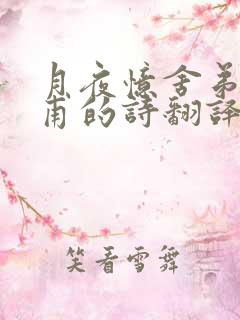 月夜憶舍弟
甫的詩翻譯
笑看雪舞